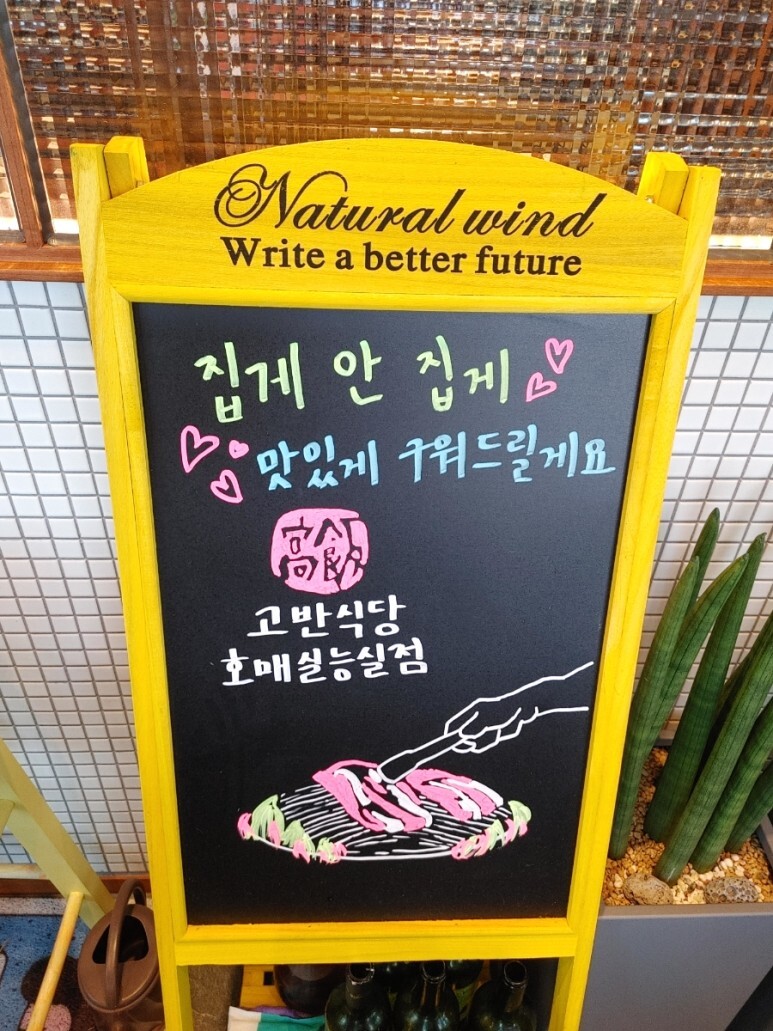 Natural wind
Write a better future
집게 안 집게
맛있게 구워드릴게요
高飯
고반식당
호매실능실점